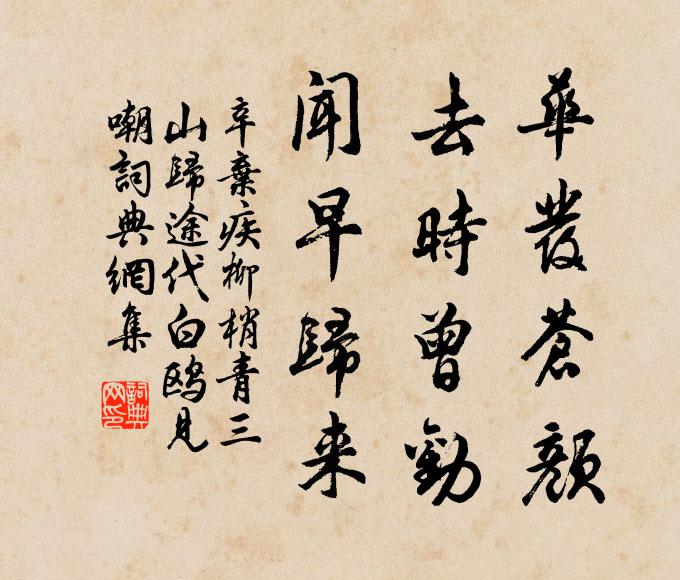 華發蒼顔
去時曾勸
聞早歸来
辛棄疾柳梢青三
山歸途代白鷗見
嘲詞典網集
詞典
网印